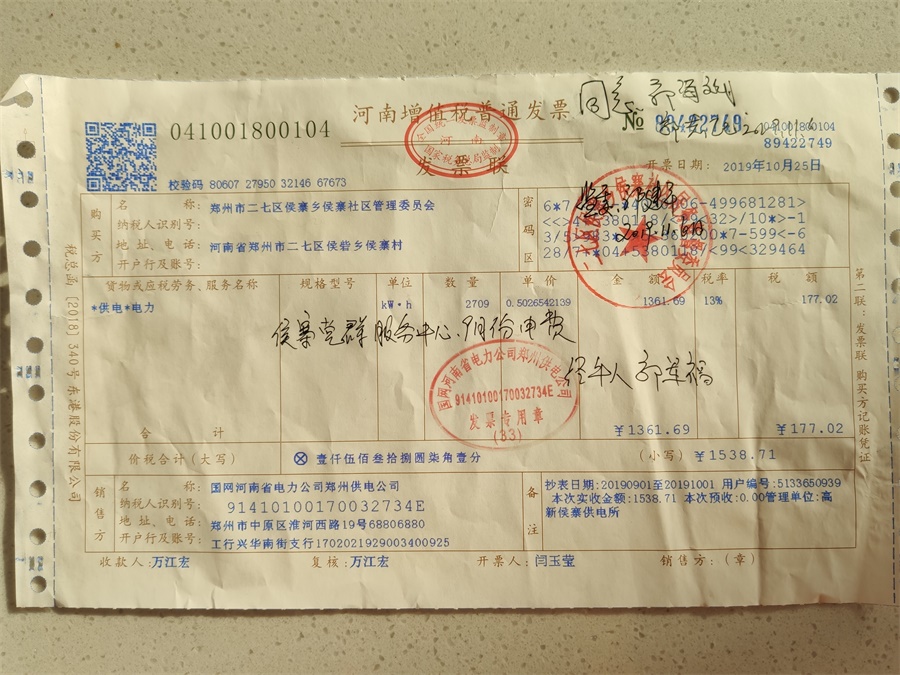 河南增值税普通发票
发票联
全国统一发票监制章
河南
国家税务总局监制
041001800104
№ 89422749
041001800104
89422749
校验码 80607 27950 32146 67673
开票日期: 2019年10月25日
购买方
名称: 郑州市二七区侯寨乡侯寨社区管理委员会
纳税人识别号:
地址、电话: 河南省郑州市二七区侯砦乡侯寨村
开户行及账号:
密码区
货物或应税劳务、服务名称 规格型号 单位 数量 单价 金额 税率 税额
*供电*电力 kW·h 2709 0.5026542139 1361.69 13% 177.02
侯寨党群服务中心.9月份电费
经手人
国网河南省电力公司郑州供电公司
91410100170032734E
发票专用章
(83)
合计 ¥1361.69 ¥177.02
价税合计(大写) ⊗ 壹仟伍佰叁拾捌圆柒角壹分 (小写) ¥1538.71
销售方
名称: 国网河南省电力公司郑州供电公司
纳税人识别号: 91410100170032734E
地址、电话: 郑州市中原区淮河西路19号68806880
开户行及账号: 工行兴华南街支行1702021929003400925
备注
抄表日期:20190901至20191001 用户编号:5133650939
本次实收金额:1538.71 本次预收:0.00管理单位:高
新侯寨供电所
收款人:万江宏 复核:万江宏 开票人:闫玉莹 销售方:(章)
税总函〔2018〕340号东港股份有限公司
第二联:发票联 购买方记账凭证